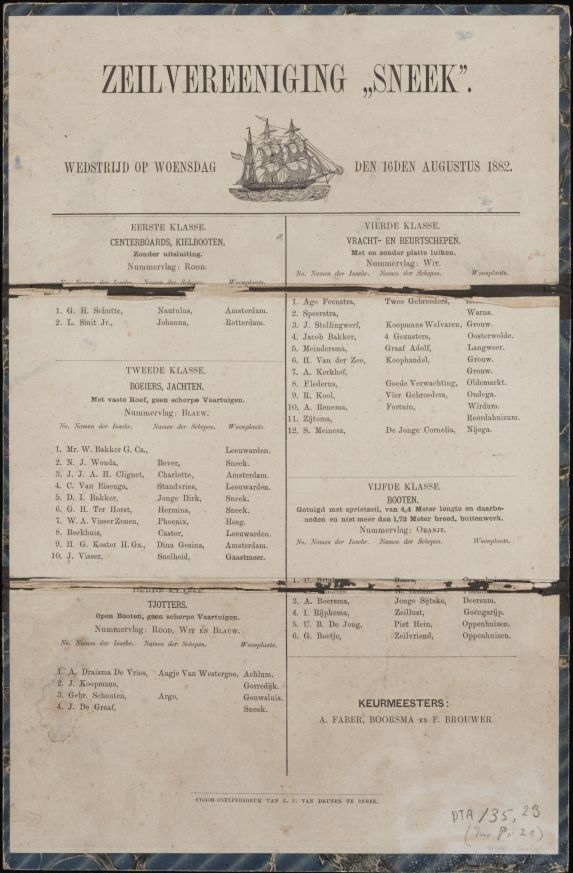 ZEILVEREENIGING „SNEEK”.
WEDSTRIJD OP WOENSDAG DEN 16DEN AUGUSTUS 1882.
EERSTE KLASSE.
CENTERBOARDS, KIELBOOTEN.
Zonder uitsluiting.
Nummervlag: ROOD.
No. Namen der Inschr. Namen der Schepen. Woonplaats.
1. G. H. Schutte, Nautulus, Amsterdam.
2. L. Smit Jr., Johanna, Rotterdam.
TWEEDE KLASSE.
BOEIERS, JACHTEN.
Met vaste Roef, geen scherpe Vaartuigen.
Nummervlag: BLAUW.
No. Namen der Inschr. Namen der Schepen. Woonplaats.
1. Mr. W. Bakker G. Cz., Leeuwarden.
2. N. J. Wouda, Bever, Sneek.
3. J. J. A. H. Clignet, Charlotte, Amsterdam.
4. C. Van Eisenga, Standvries, Leeuwarden.
5. D. I. Bakker, Jonge Dirk, Sneek.
6. G. H. Ter Horst, Hermina, Sneek.
7. W. A. Visser Zonen, Phoenix, Heeg.
8. Beekhuis, Castor, Leeuwarden.
9. H. G. Koster H. Gz., Dina Gesina, Amsterdam.
10. J. Visser, Snelheid, Gaastmeer.
DERDE KLASSE.
TJOTTERS.
Open Booten, geen scherpe Vaartuigen.
Nummervlag: ROOD, WIT EN BLAUW.
No. Namen der Inschr. Namen der Schepen. Woonplaats.
1. A. Draisma De Vries, Aagje Van Westergoo, Achlum.
2. J. Koopmans, Gorredijk.
3. Gebr. Schouten, Argo, Gouwsluis.
4. J. De Graaf, Sneek.
VIERDE KLASSE.
VRACHT- EN BEURTSCHEPEN.
Met en zonder platte luiken.
Nummervlag: WIT.
No. Namen der Inschr. Namen der Schepen. Woonplaats.
1. Age Feenstra, Twee Gebroeders,
2. Speerstra, Warns.
3. J. Stellingwerf, Koopmans Welvaren, Grouw.
4. Jacob Bakker, 4 Gezusters, Oosterwolde.
5. Meindersma, Graaf Adolf, Langweer.
6. H. Van der Zee, Koophandel, Grouw.
7. A. Kerkhof, Grouw.
8. Flederus, Goede Verwachting, Oldemarkt.
9. R. Kool, Vier Gebroeders, Oudega.
10. A. Renema, Fortuin, Wirdum.
11. Zijtema, Roordahuizum.
12. S. Meinesz, De Jonge Cornelia, Nijega.
VIJFDE KLASSE.
BOOTEN.
Getuigd met sprietzeil, van 4,4 Meter lengte en daarbe-
neden en niet meer dan 1,72 Meter breed, buitenwerk.
Nummervlag: ORANJE.
No. Namen der Inschr. Namen der Schepen. Woonplaats.
1. U.
3. A. Boersma, Jonge Sijtske, Deersum.
4. I. Rijpkema, Zeillust, Goëngarijp.
5. U. B. De Jong, Piet Hein, Oppenhuizen.
6. G. Boetje, Zeilvriend, Oppenhuizen.
KEURMEESTERS:
A. FABER, BOORSMA EN F. BROUWER.
STOOM-SNELPERSDRUK VAN J. F. VAN DRUTEN TE SNEEK.
DTA 135, 23